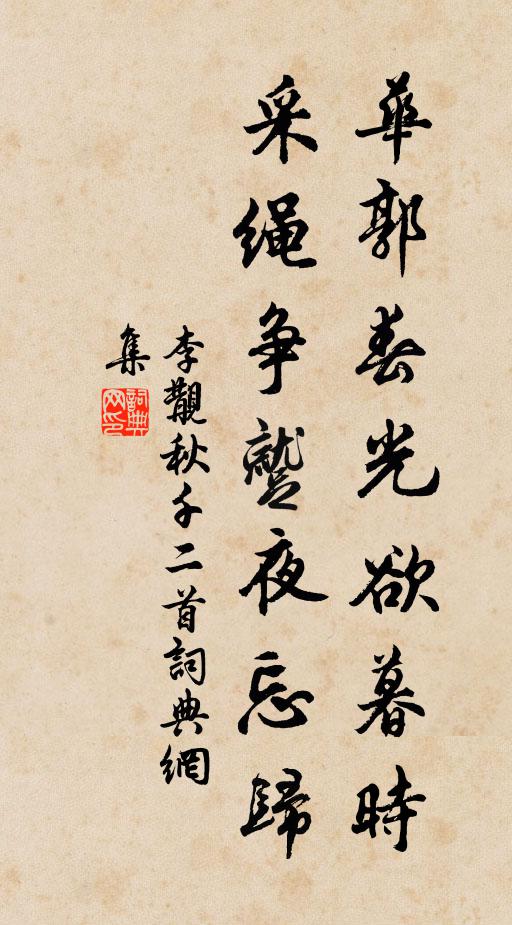 華郭春光欲暮時
采绳争蹙夜忘歸
李覯秋千二首詞典網
集
詞典网印